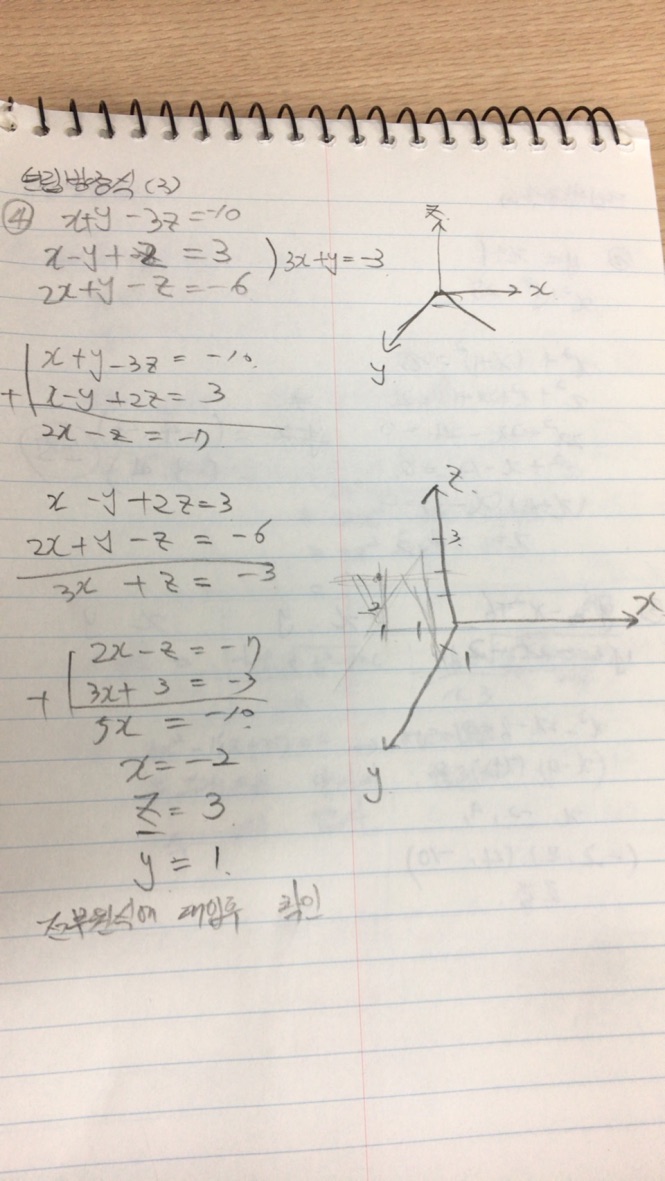 연립방정식 (3)
④ x+y-3z=-10
x-y+2z=3 ) 3x+y=-3
2x+y-z=-6
x+y-3z=-10
+ x-y+2z=3
2x-z=-7
x-y+2z=3
2x+y-z=-6
3x+z=-3
2x-z=-7
+ 3x+3=-3
5x=-10
x=-2
z=3
y=1.
전부 원식에 대입후 확인
z
x
y
z
3
x
2
1
1
1
y